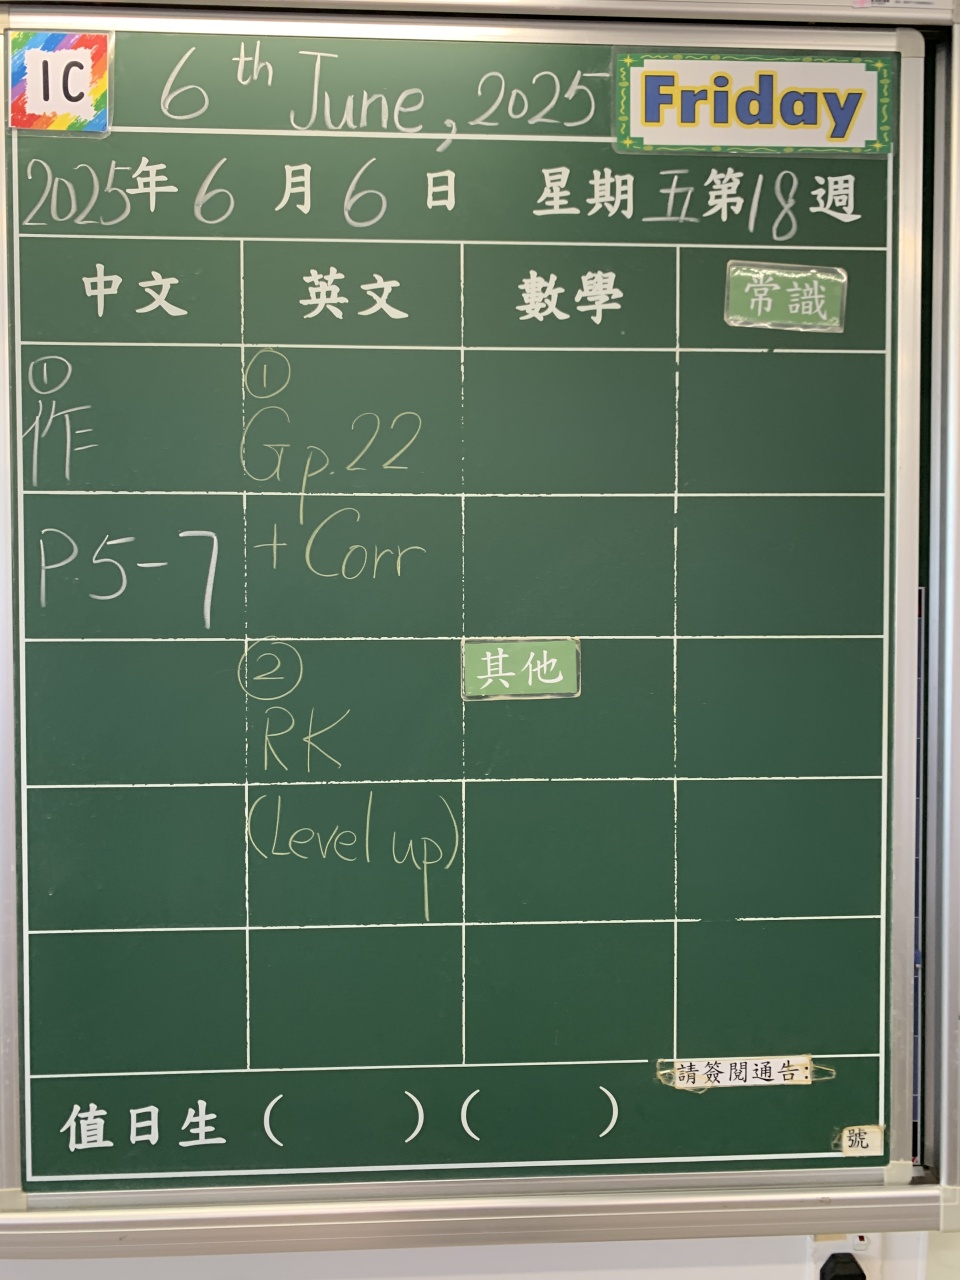 1C 6th June, 2025 Friday
2025年6月6日 星期五第18週
中文 英文 數學 常識
①
作
P5-7
①
Gp.22
+Corr
②
RK
(Level up)
其他
請簽閱通告:
值日生 ( ) ( )
號